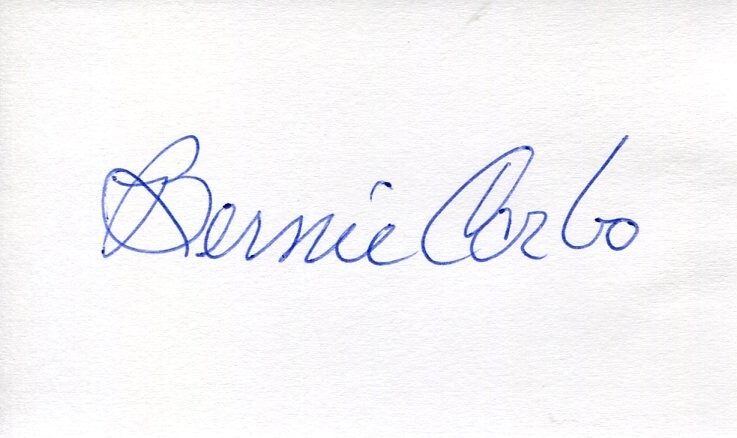 Bernie Carbo